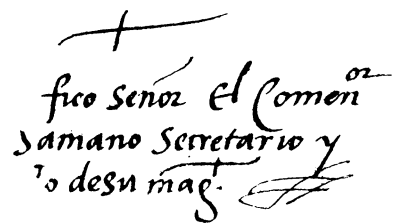 fico señor El Comenor
samano secretario y
o desu magt.